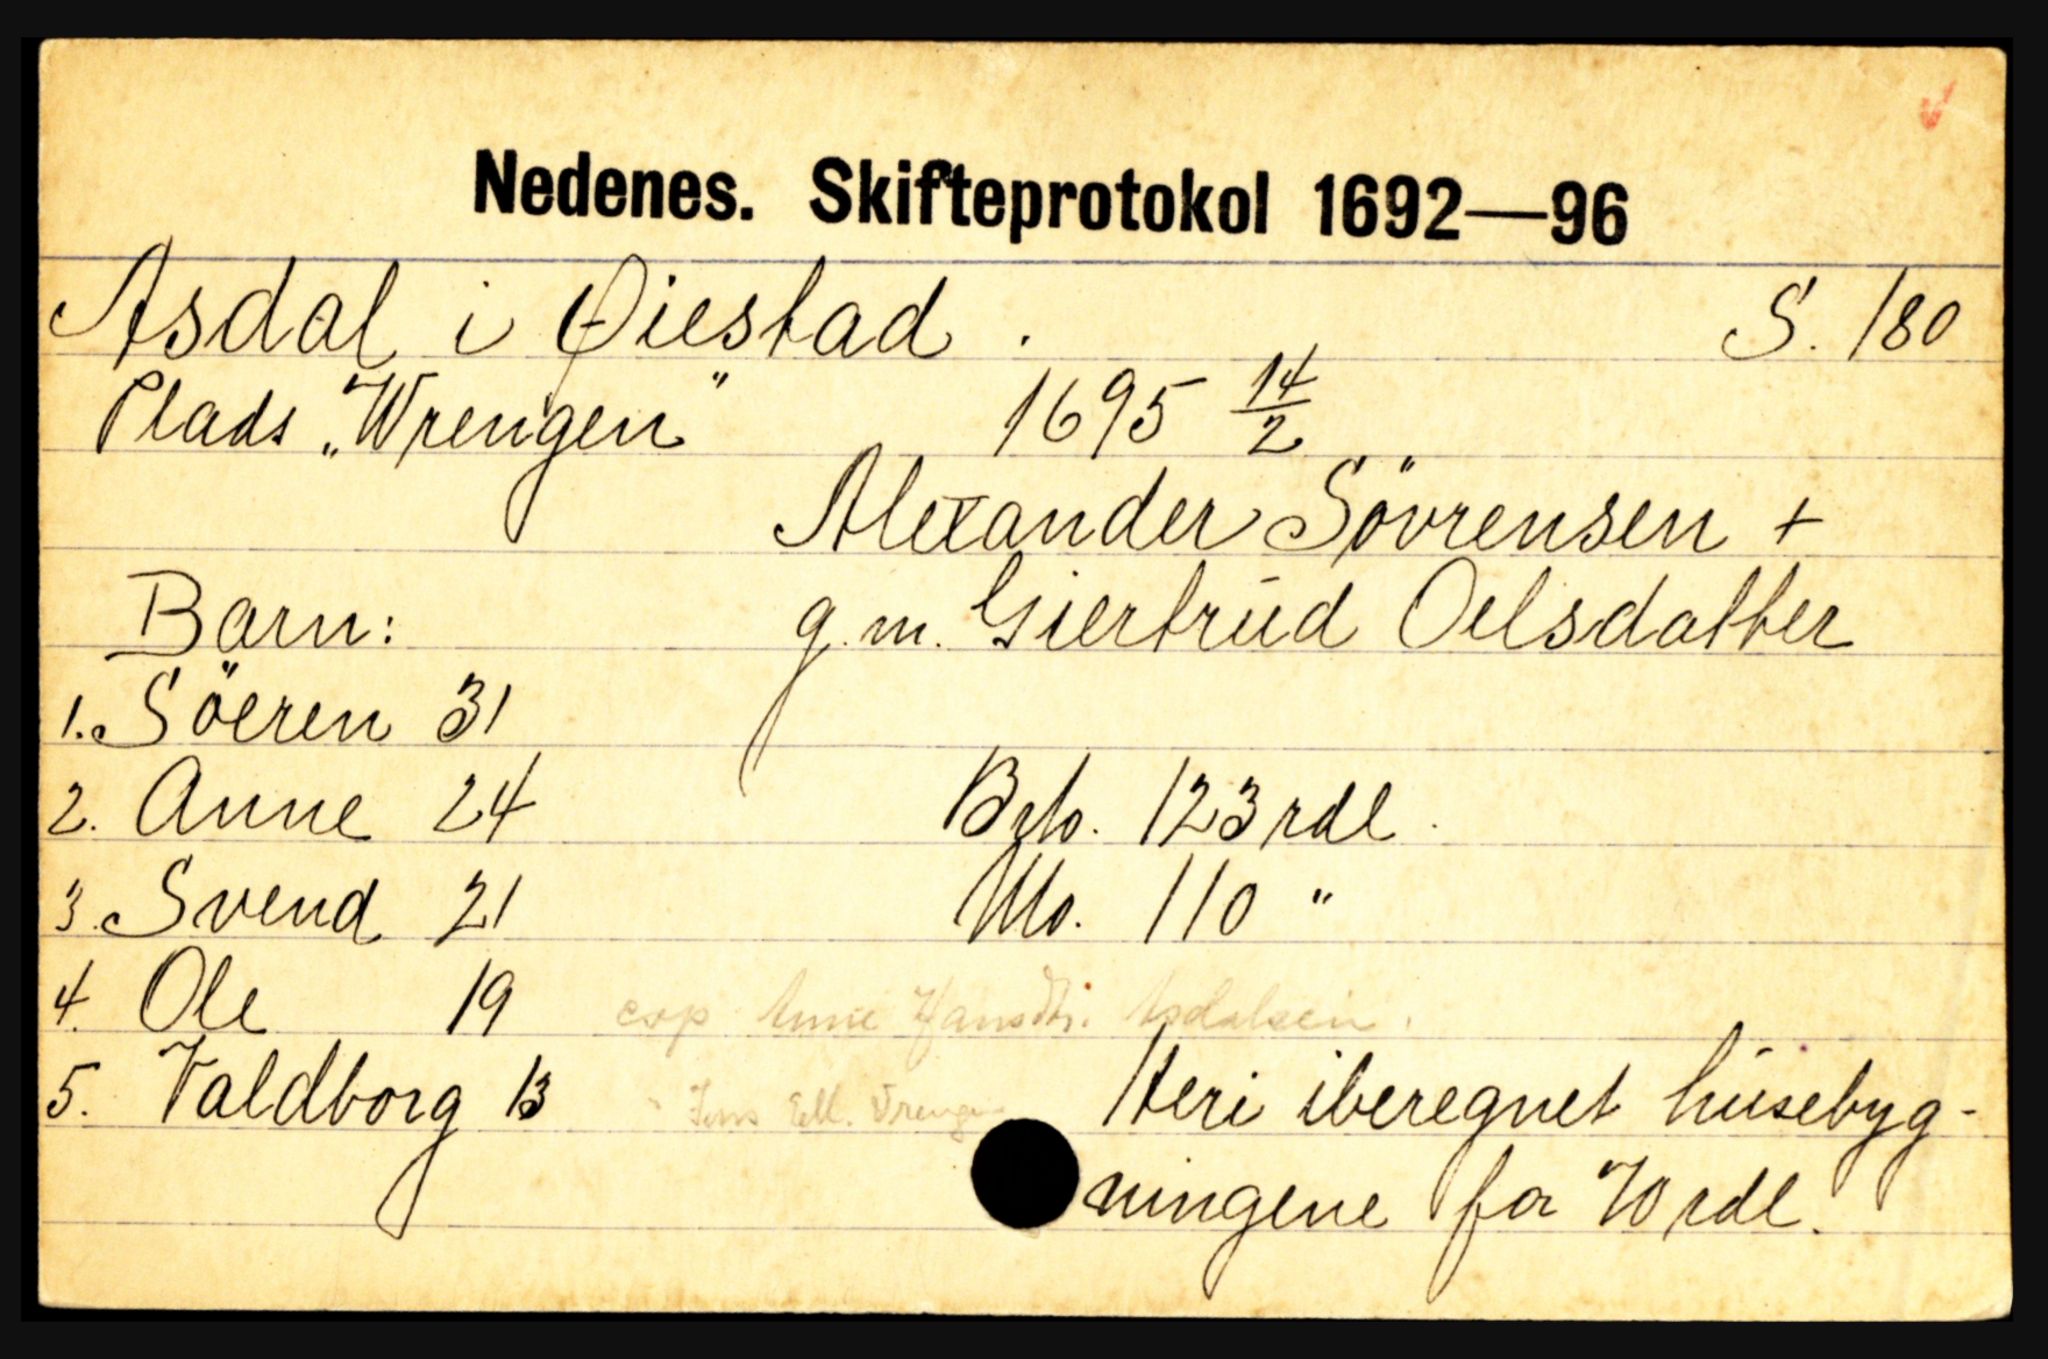 Nedenes. Skifteprotokol 1692—96
Asdal i Øiestad. S. 180
Plads „Wrengen" 1695 14/2
Alexander Sövrensen +
Barn: g.m. Giertrud Oelsdatter
1. Söeren 31
2. Anne 24 Brto. 123 rdl.
3. Svend 21 Nto. 110 "
4. Ole 19 cop Anne Hansdtr. Asdalsen.
5. Valdborg 13 " Jens Ell. Vrengen Heri iberegnet husebyg-
ningene for 70 rdl.